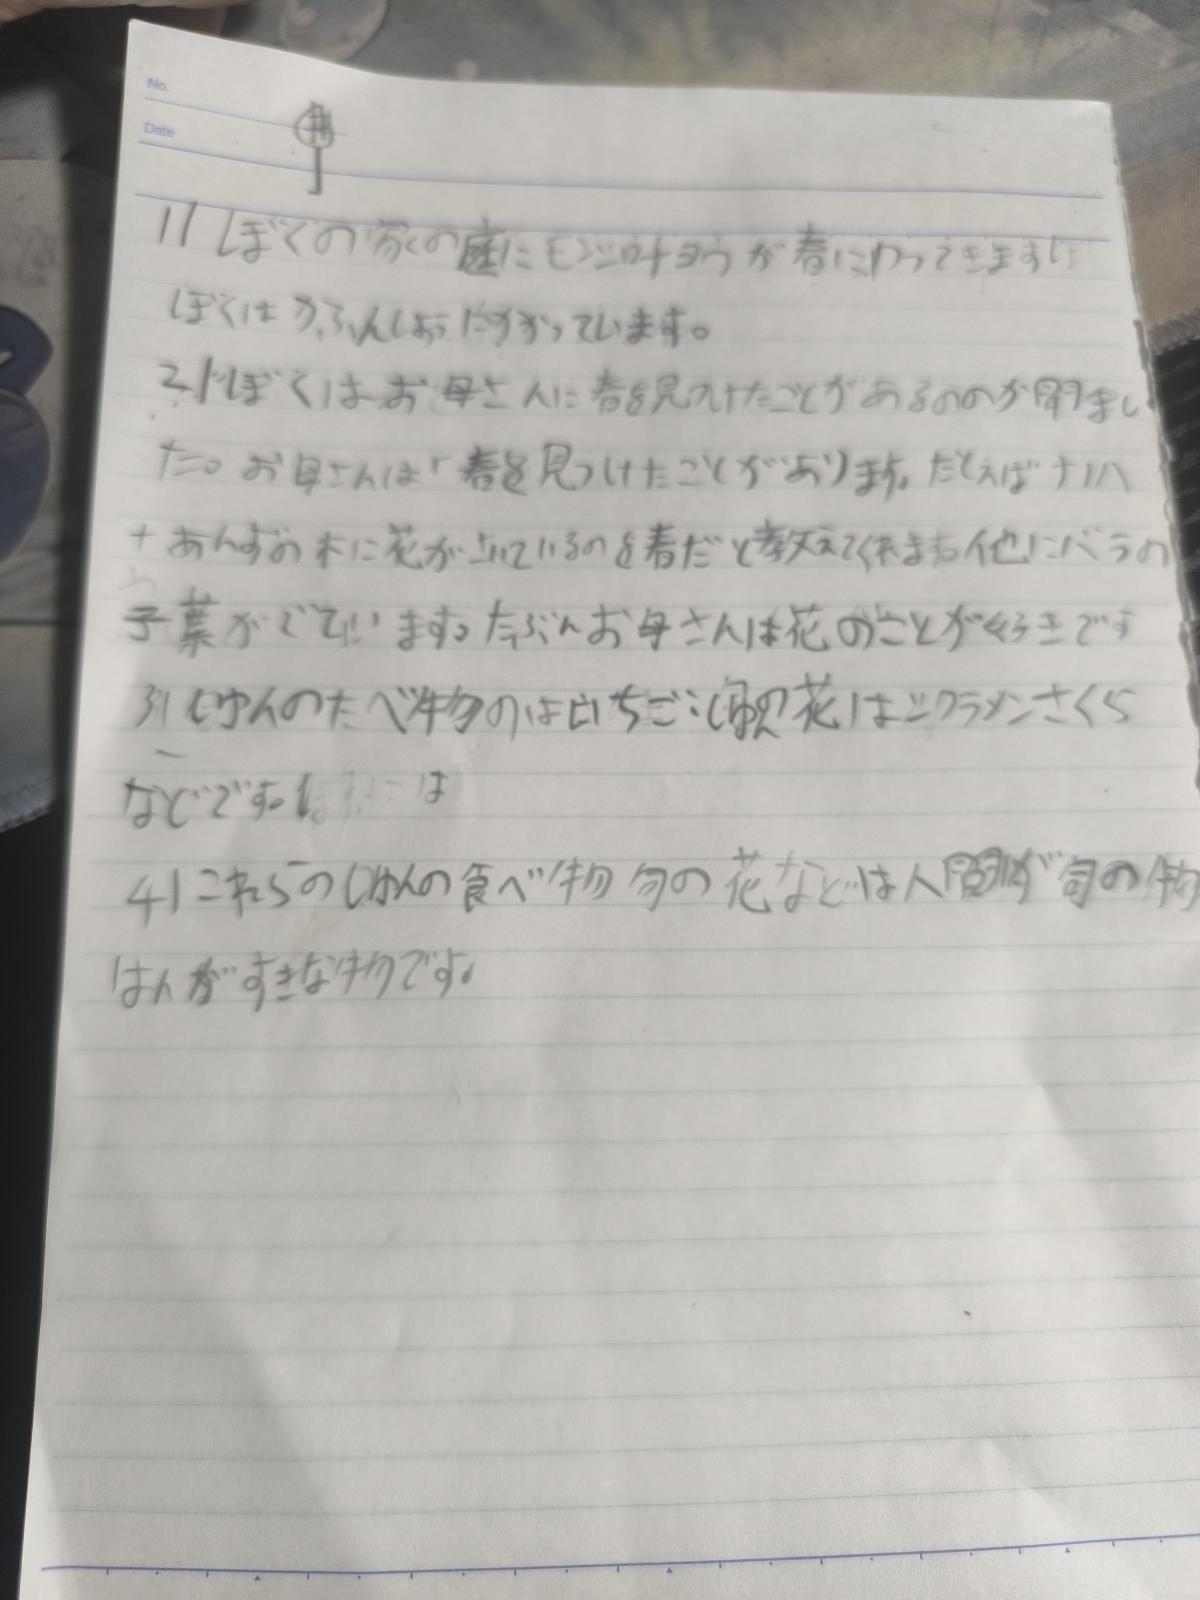 No.
Date
1| ぼくの家の庭にモンシロチョウが春にやってきますぼ
ぼくはかふんしょうにかかっています。
2| ぼくはお母さんに春を見つけたことがあるのか聞きまし
た。お母さんは「春を見つけたことがあります。だとえばナノハ
ナあんずの木に花がさいているのを春だと教えてくれます他にバラの
子葉がでています。たぶんお母さんは花のことがすきです
3| じゅんのたべ物のはいちご:じゅんの花はシクラメンさくら
などです。は
4| これらのじゅんの食べ物旬の花などは人間が旬の物
はんがすきな物です。